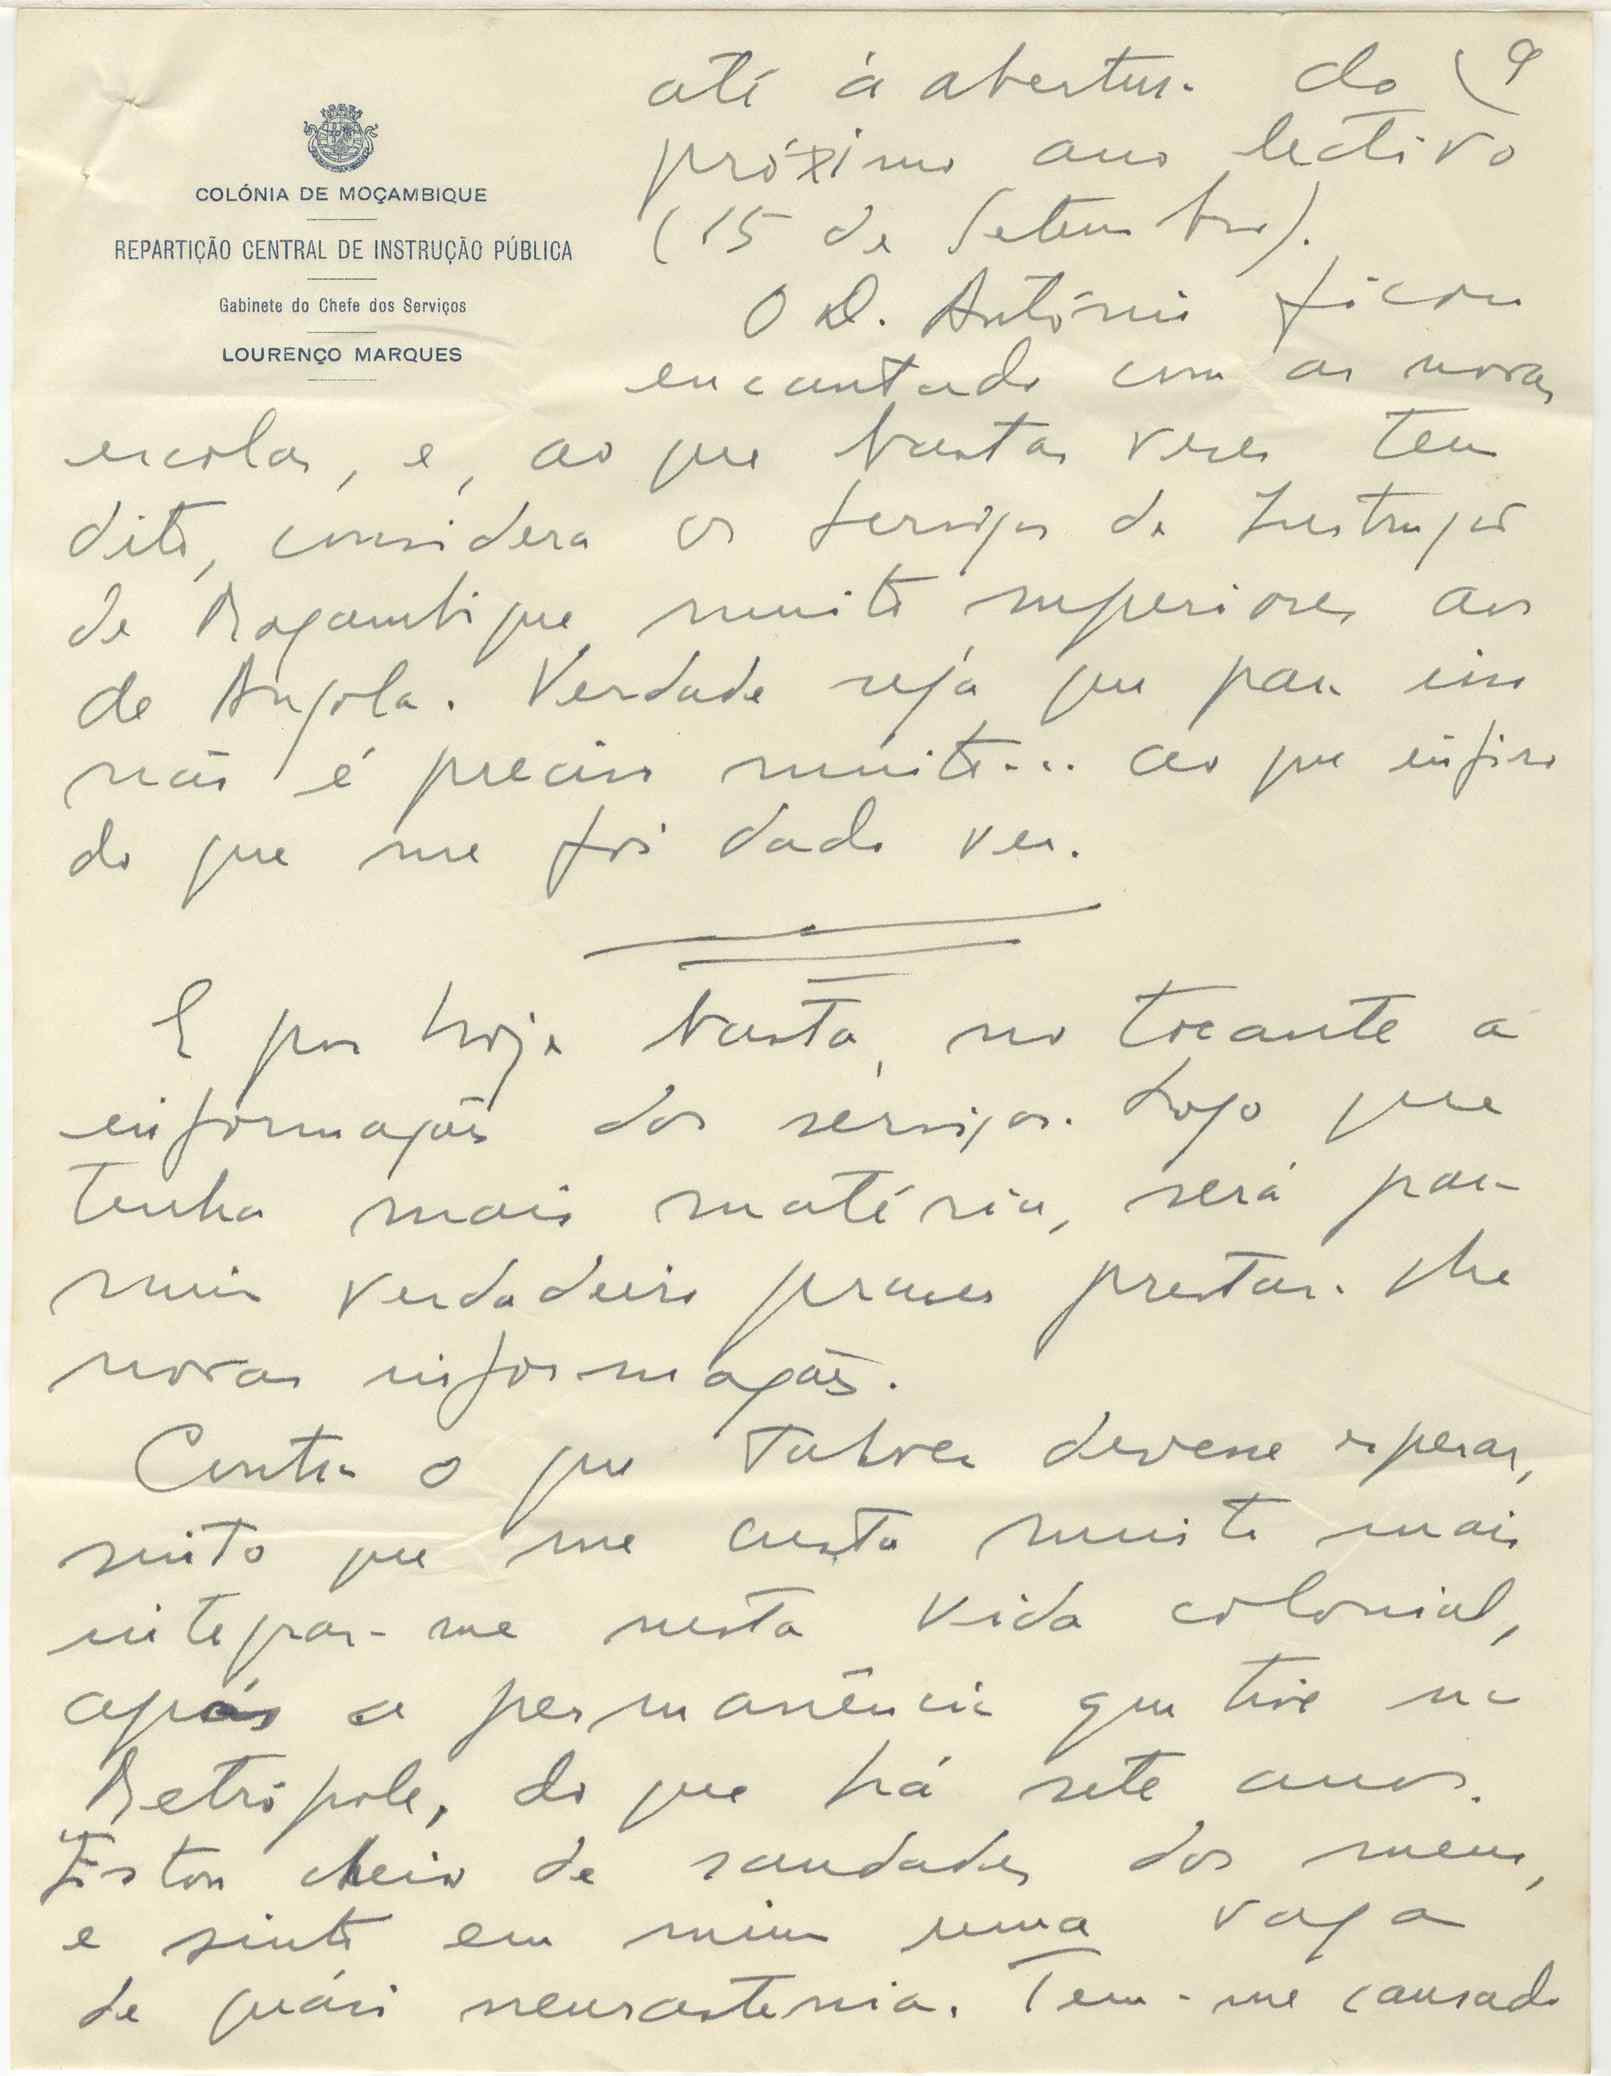 COLÓNIA DE MOÇAMBIQUE
REPARTIÇÃO CENTRAL DE INSTRUÇÃO PÚBLICA
Gabinete do Chefe dos Serviços
LOURENÇO MARQUES
9
até à abertura do
próximo ano lectivo
(15 de Setembro).
O D. António ficou
encantado com as novas
escolas, e, ao que bastas vezes tem
dito, considera os Serviços de Instrução
de Moçambique muito superiores aos
de Angola. Verdade seja que para isso
não é preciso muito... ao que infiro
do que me foi dado ver.
E por hoje basta, no tocante a
informações dos serviços. Logo que
tenha mais matéria, será para
mim verdadeiro prazer prestar-lhe
novas informações.
Contra o que talvez devesse esperar,
sinto que me custa muito mais
integrar-me nesta vida colonial,
após a permanência que tive na
Metrópole, do que há sete anos.
Estou cheio de saudades dos meus,
e sinto em mim uma vaga
de quási neurastenia. Tem-me causado